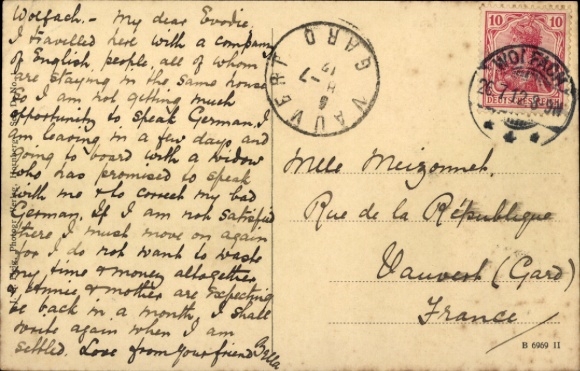 Wolfach.- My dear Evodie.
I travelled here with a company
of English people, all of whom
are staying in the same house
so I am not getting much
opportunity to speak German. I
am leaving in a few days and
going to board with a widow
who has promised to speak
with me & to correct my bad
German. If I am not satisfied
there I must move on again
for I do not want to waste
my time & money altogether
& Annie & mother are expecting
me back in a month, I shall
write again when I am
settled. Love from your friend Bella
10 10
DEUTSCHES REICH
WOLFACH
VAUVERT
GARD
Mlle Meizonnet
Rue de la République
Vauvert (Gard)
France
B 6969 II